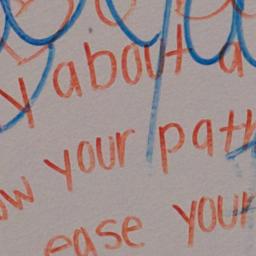 y about a
w your path
ease your